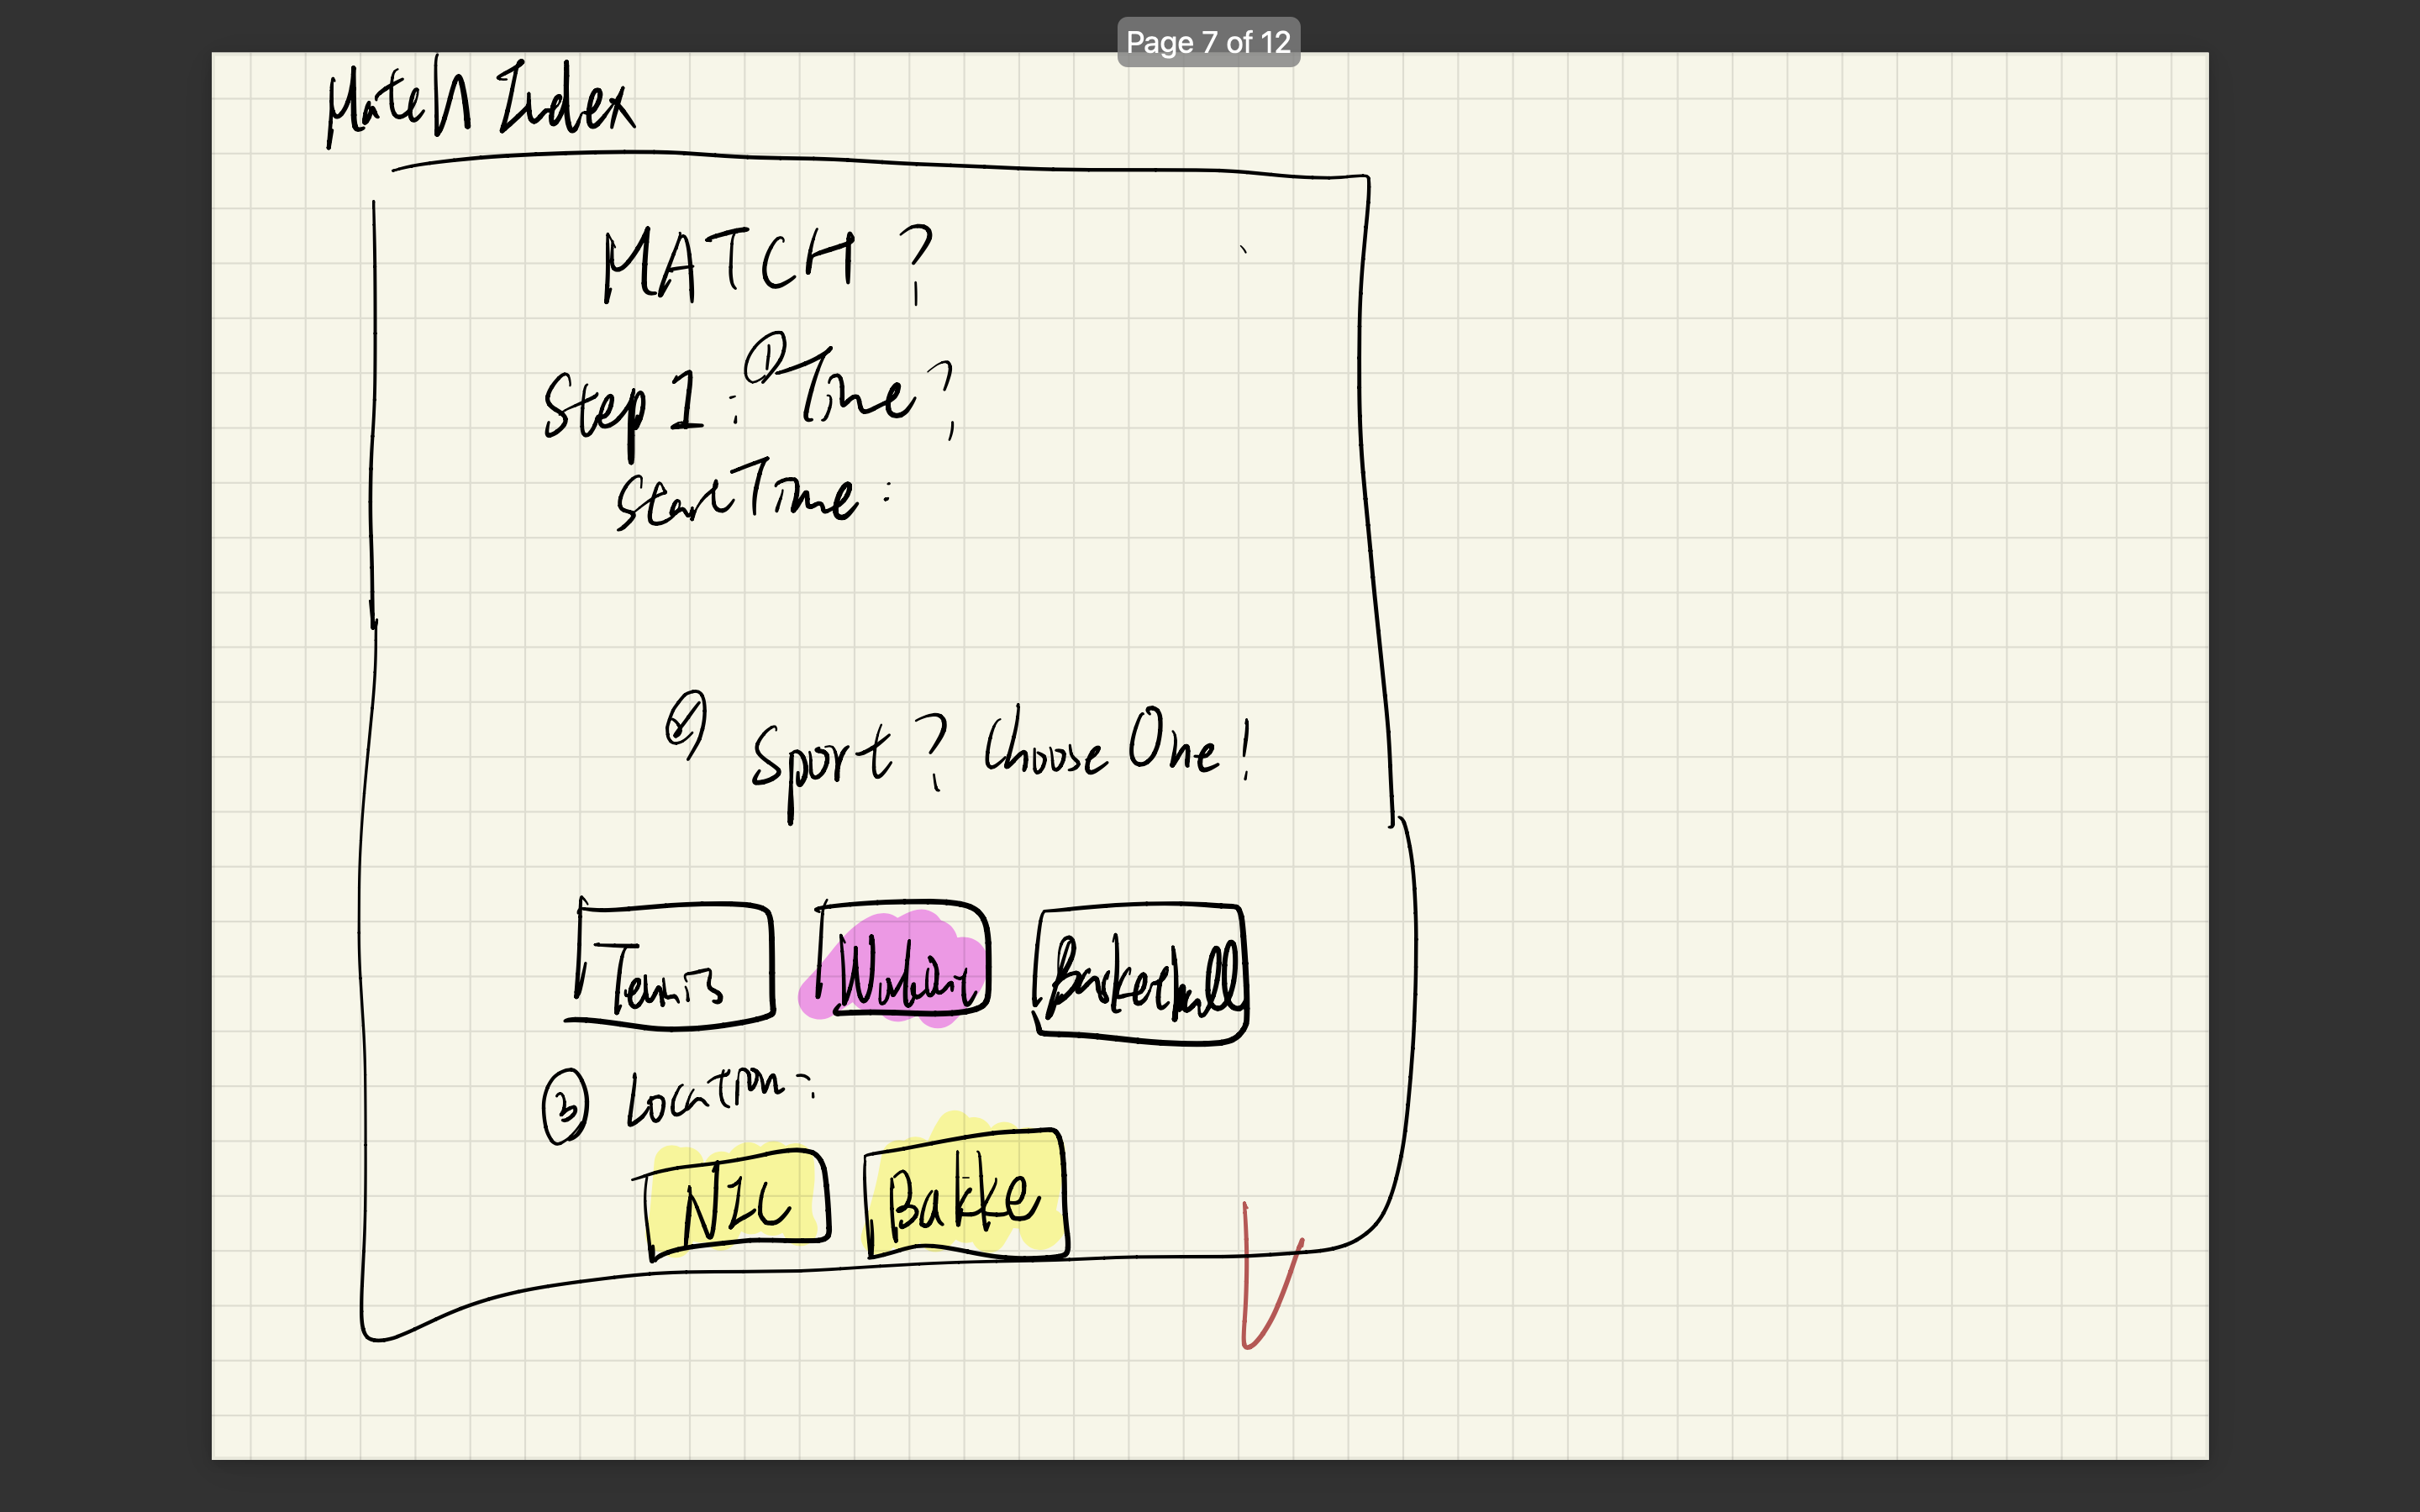 Page 7 of 12
Match Index
MATCH ?
Step 1 : ① Time ?
startTime :
② Sport ? Choose One !
Tennis Workout Basketball
③ Location :
Bakke